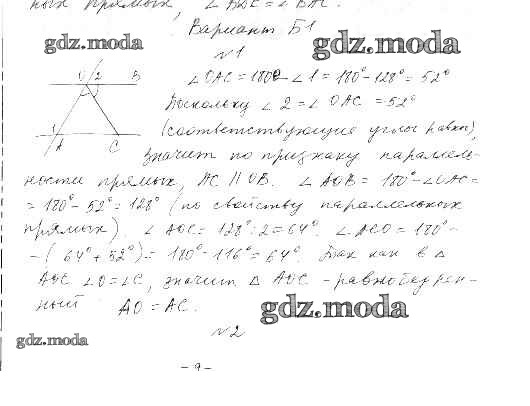 ных прямых, ∠BDE = ∠BAC.
Вариант Б1
gdz.moda
gdz.moda
№1
O 2 B
∠OAC = 180° - ∠1 = 180° - 128° = 52°
Поскольку ∠2 = ∠OAC = 52°
1 A C
(соответствующие углы равны),
значит по признаку параллель-
ности прямых, AC || OB. ∠AOB = 180° - ∠OAC =
= 180° - 52° = 128° (по свойству параллельных
прямых). ∠AOC = 128° : 2 = 64°. ∠ACO = 180° -
- (64° + 52°) = 180° - 116° = 64°. Так как в △
AOC ∠O = ∠C, значит △ AOC - равнобедрен-
ный AO = AC.
gdz.moda
№2
gdz.moda
- 9 -